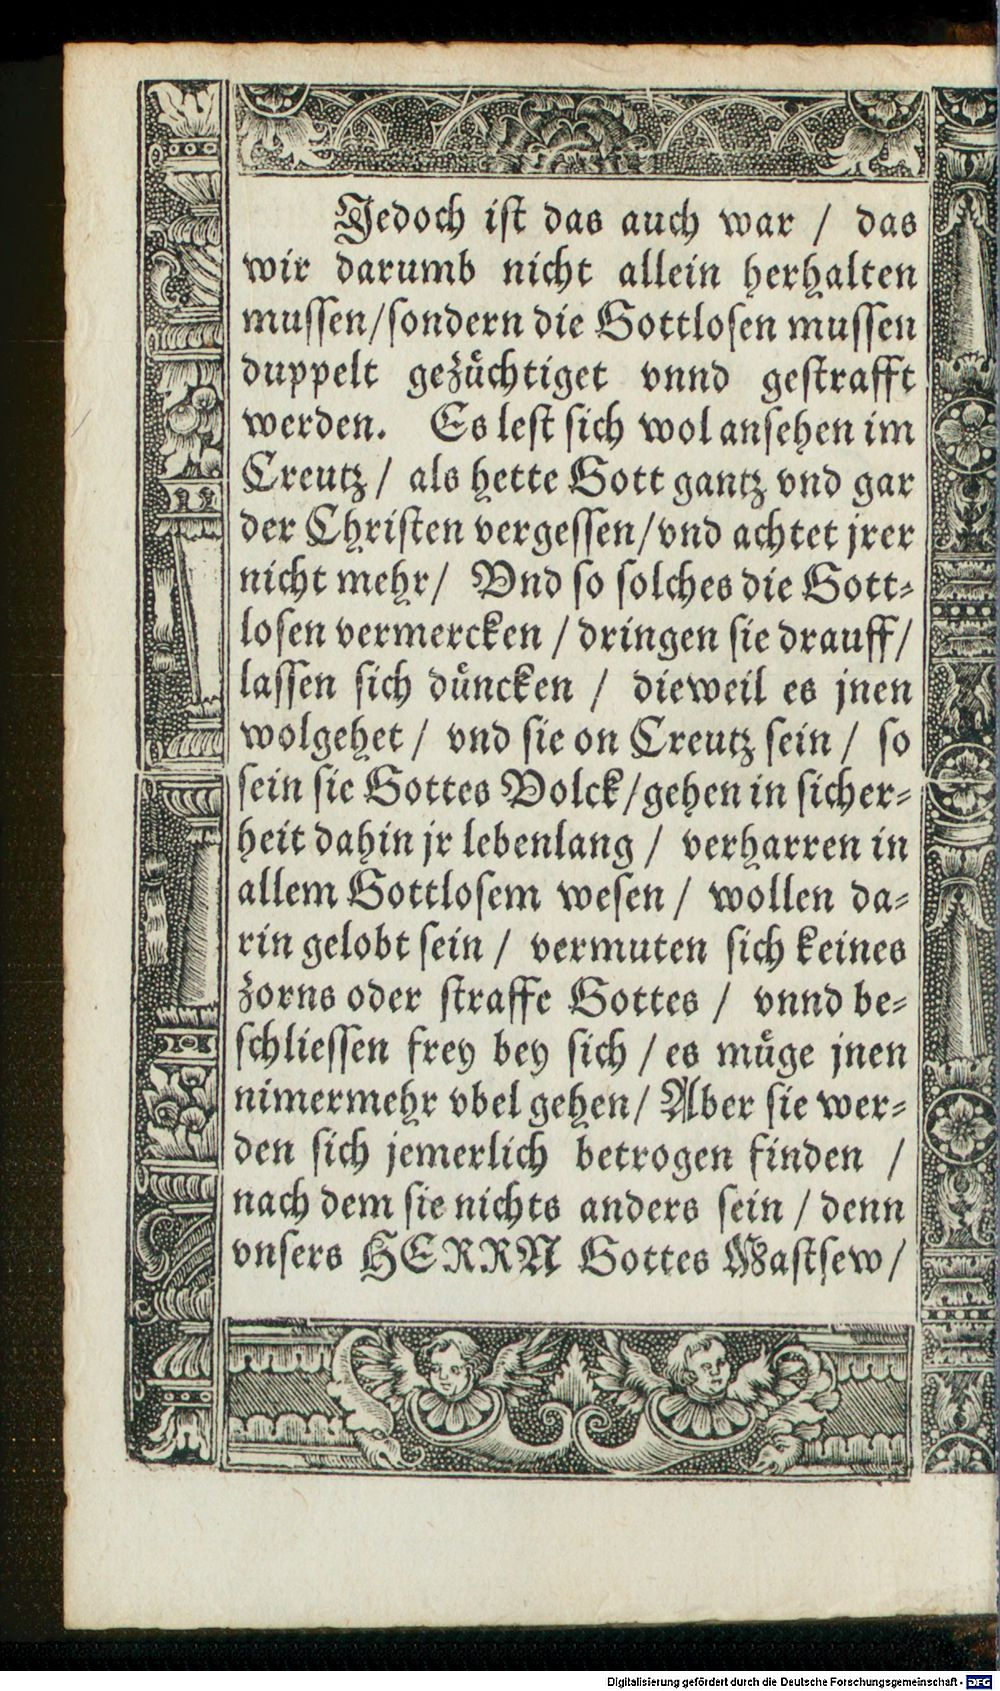 Jedoch ist das auch war / das
wir darumb nicht allein herhalten
mussen/sondern die Gottlosen mussen
duppelt gezuͤchtiget vnnd gestrafft
werden. Es lest sich wol ansehen im
Creutz / als hette Gott gantz vnd gar
der Christen vergessen/vnd achtet jrer
nicht mehr/ Vnd so solches die Gott⸗
losen vermercken / dringen sie drauff/
lassen sich duͤncken / dieweil es jnen
wolgehet / vnd sie on Creutz sein / so
sein sie Gottes Volck/gehen in sicher⸗
heit dahin jr lebenlang / verharren in
allem Gottlosem wesen / wollen da⸗
rin gelobt sein / vermuten sich keines
zorns oder straffe Gottes / vnnd be⸗
schliessen frey bey sich / es muͤge jnen
nimermehr vbel gehen/ Aber sie wer⸗
den sich jemerlich betrogen finden /
nach dem sie nichts anders sein / denn
vnsers HERRN Gottes Mastsew/
Digitalisierung gefördert durch die Deutsche Forschungsgemeinschaft - DFG